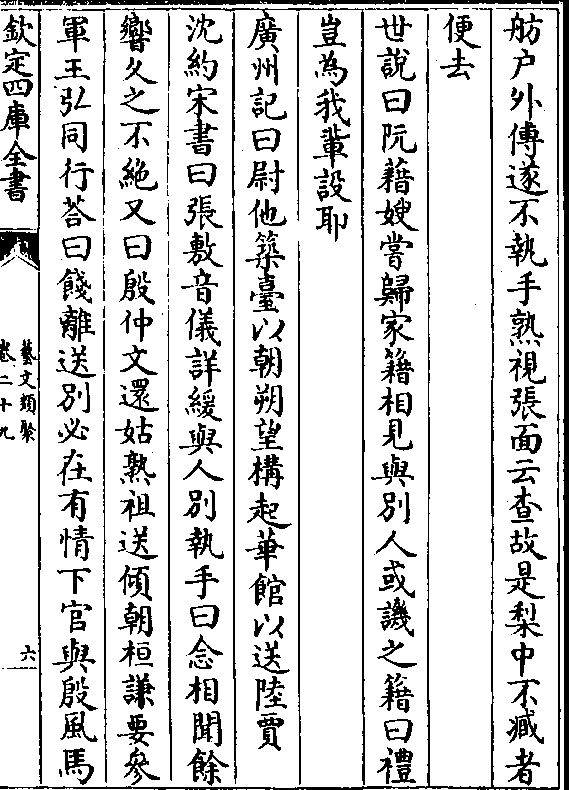 舫户外傅遂不執手熟視張面云查故是梨中不臧者
便去
世說曰阮藉嫂嘗歸家籍相見與別人或譏之籍曰禮
豈為我輩設耶
廣州記曰尉他築臺以朝朔望構起華館以送陸賈
沈約宋書曰張敷音儀詳緩與人別執手曰念相聞餘
響久之不絶又曰殷仲文還姑熟祖送傾朝桓謙要參
軍王弘同行荅曰餞離送別必在有情下官與殷風馬
欽定四庫全書
藝文類聚
卷二十九
六